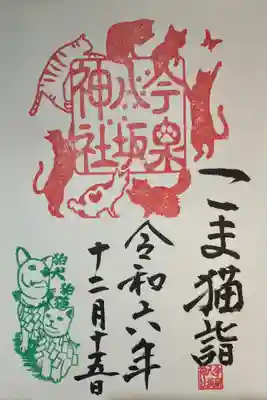 今泉
八坂
神社
こま猫詣
令和六年
十二月十五日
狛犬
狛猫